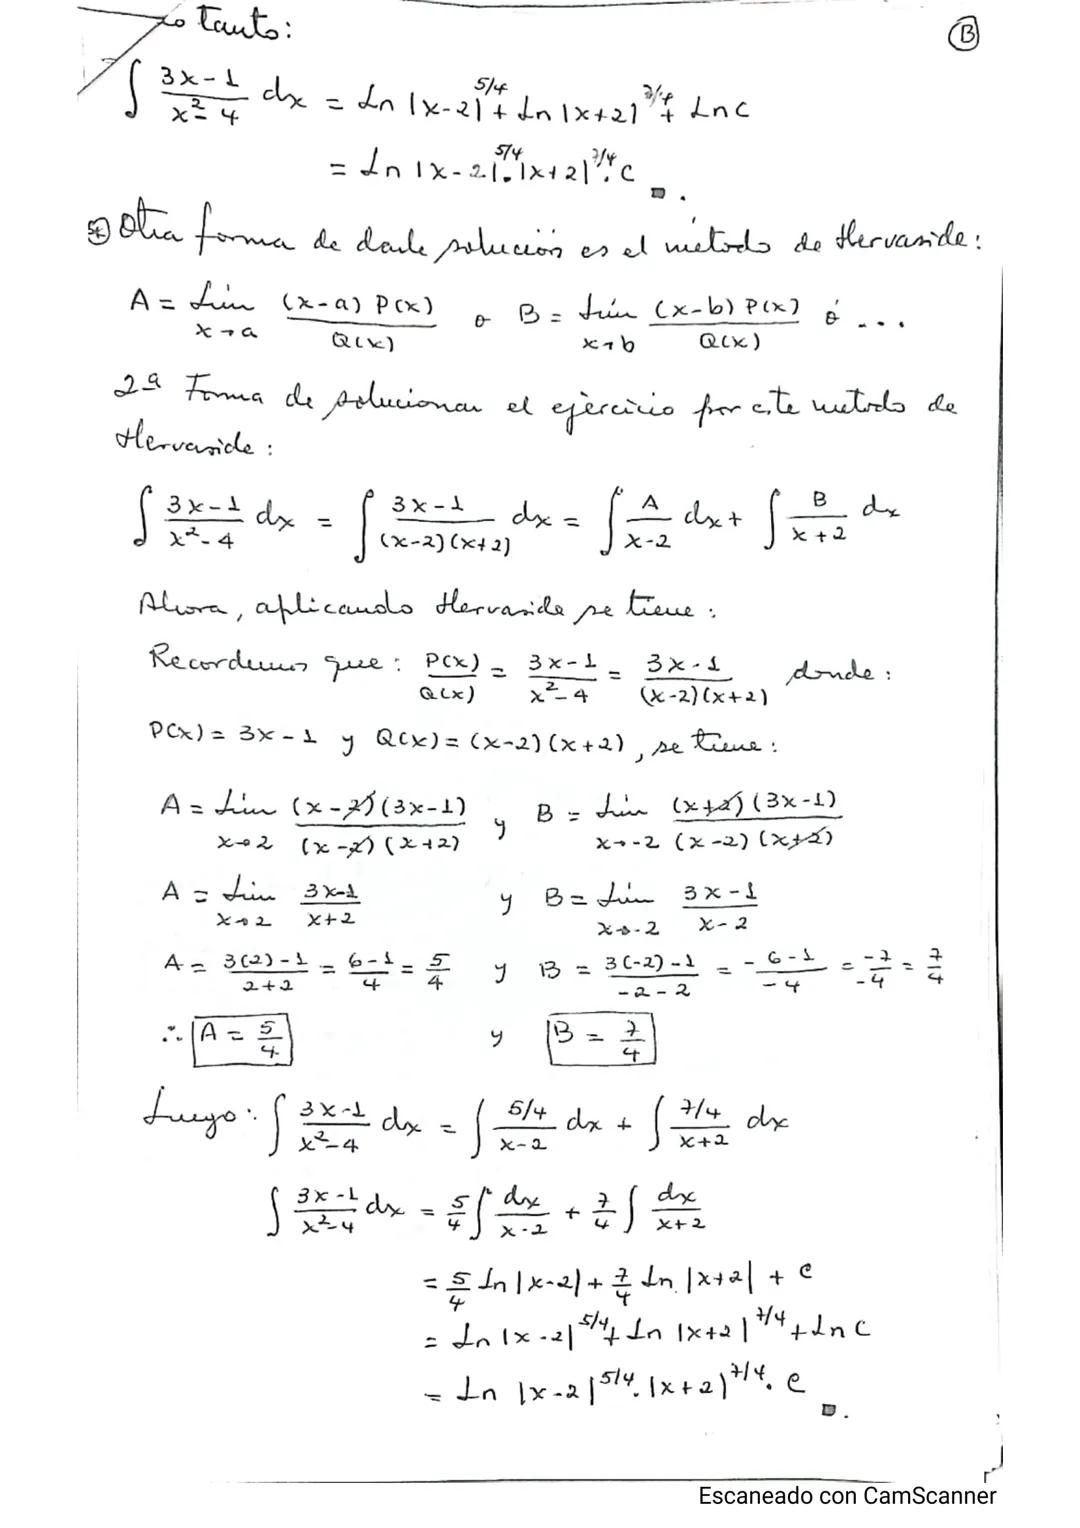 lo tanto:
B
∫ (3x-1)/(x²-4) dx = Ln |x-2|^(5/4) + Ln |x+2|^(7/4) + Ln c
= Ln |x-2|^(5/4) . |x+2|^(7/4) . c
Otra forma de darle solución es el método de Hervaside:
A = Lim x→a (x-a) P(x) / Q(x) o B = Lim x→b (x-b) P(x) / Q(x) ó ...
2ª Forma de solucionar el ejercicio por este metodo de
Hervaside :
∫ (3x-1)/(x²-4) dx = ∫ (3x-1)/((x-2)(x+2)) dx = ∫ A/(x-2) dx + ∫ B/(x+2) dx
Ahora, aplicando Hervaside se tiene :
Recordemos que : P(x)/Q(x) = (3x-1)/(x²-4) = (3x-1)/((x-2)(x+2)) donde :
P(x) = 3x-1 y Q(x) = (x-2)(x+2), se tiene :
A = Lim x→2 (x-2)(3x-1) / (x-2)(x+2) y B = Lim x→-2 (x+2)(3x-1) / (x-2)(x+2)
A = Lim x→2 (3x-1)/(x+2) y B = Lim x→-2 (3x-1)/(x-2)
A = (3(2)-1)/(2+2) = (6-1)/4 = 5/4 y B = (3(-2)-1)/(-2-2) = (-6-1)/(-4) = -7/-4 = 7/4
∴ A = 5/4 y B = 7/4
Luego: ∫ (3x-1)/(x²-4) dx = ∫ (5/4)/(x-2) dx + ∫ (7/4)/(x+2) dx
∫ (3x-1)/(x²-4) dx = 5/4 ∫ dx/(x-2) + 7/4 ∫ dx/(x+2)
= 5/4 Ln |x-2| + 7/4 Ln |x+2| + c
= Ln |x-2|^(5/4) + Ln |x+2|^(7/4) + Ln c
= Ln |x-2|^(5/4) . |x+2|^(7/4) . c
Escaneado con CamScanner